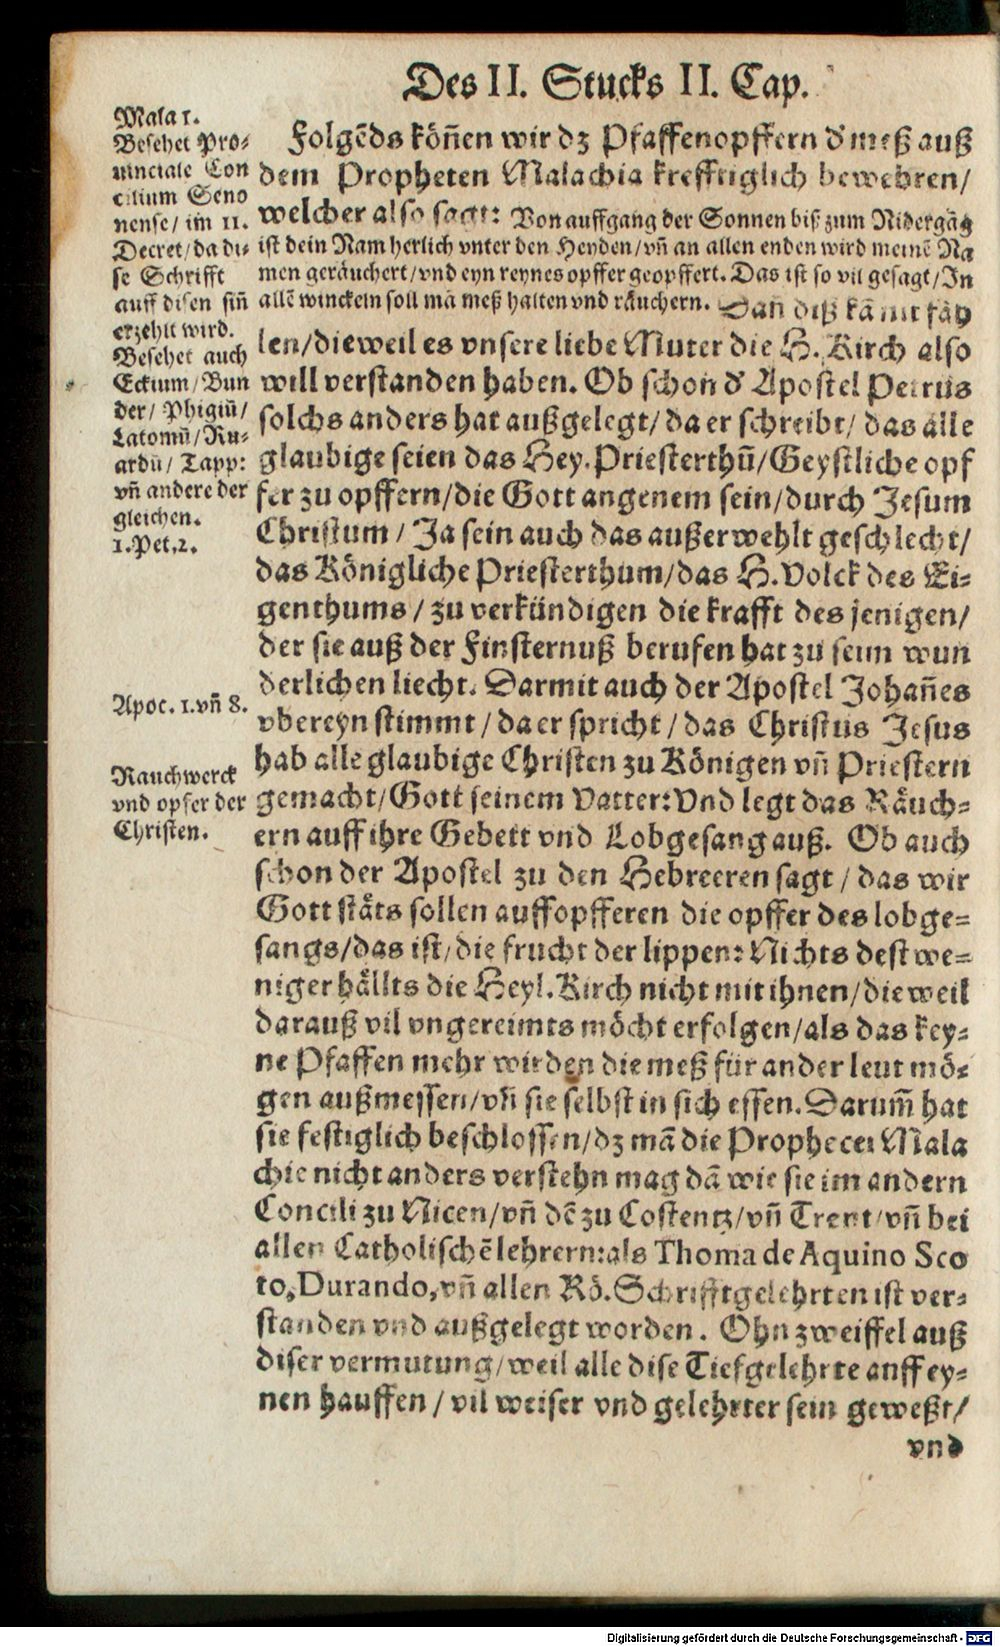 Des II. Stucks II. Cap.
Mala 1.
Besehet Pro⸗
uinciale Con
cilium Seno
nense/ im 11.
Decret/ da di⸗
se Schrifft
auff disen siñ
erzehlt wird.
Besehet auch
Eckium/ Bun
der/ Phigiũ/
Latomũ/ Ru⸗
ardũ/ Tapp:
vñ andere der
gleichen.
1.Pet.2.
Apoc. 1.vñ 8.
Rauchwerck
vnd opfer der
Christen.
Folgẽds köñen wir dz Pfaffenopffern d' meß auß
dem Propheten Malachia krefftiglich bewehren/
welcher also sagt: Von auffgang der Sonnen biß zum Nidergãg
ist dein Nam herlich vnter den Heyden/ vñ an allen enden wird meinẽ Na
men geräuchert/ vnd eyn reynes opffer geopffert. Das ist so vil gesagt/ In
allẽ winckeln soll mã meß halten vnd räuchern. Dañ diß kã nit fäh
len/ dieweil es vnsere liebe Muter die H. Kirch also
will verstanden haben. Ob schon d' Apostel Petrus
solchs anders hat außgelegt/ da er schreibt/ das alle
glaubige seien das Hey. Priesterthũ/ Geystliche opf
fer zu opffern/ die Gott angenem sein/ durch Jesum
Christum/ Ja sein auch das außerwehlt geschlecht/
das Königliche Priesterthum/ das H. Volck des Ei⸗
genthums/ zu verkündigen die krafft des jenigen/
der sie auß der Finsternuß berufen hat zu seim wun
derlichen liecht. Darmit auch der Apostel Johañes
vbereyn stimmt/ da er spricht/ das Christus Jesus
hab alle glaubige Christen zu Königen vñ Priestern
gemacht/ Gott seinem Vatter: Vnd legt das Räuch⸗
ern auff ihre Gebett vnd Lobgesang auß. Ob auch
schon der Apostel zu den Hebreeren sagt/ das wir
Gott stäts sollen auffopfferen die opffer des lobge⸗
sangs/ das ist/ die frucht der lippen: Nichts dest we⸗
niger hällts die Heyl. Kirch nicht mit ihnen/ die weil
darauß vil vngereimts möcht erfolgen/ als das key⸗
ne Pfaffen mehr würden die meß für ander leut mö⸗
gen außmessen/ vñ sie selbst in sich essen. Darum̃ hat
sie festiglich beschlossen/ dz mã die Prophecei Mala
chie nicht anders verstehn mag dã wie sie im andern
Concili zu Nicen/ vñ dẽ zu Costentz/ vñ Trent/ vñ bei
allen Catholischẽ lehrern: als Thoma de Aquino Sco
to, Durando, vñ allen Rö. Schrifftgelehrten ist ver⸗
standen vnd außgelegt worden. Ohn zweiffel auß
diser vermutung/ weil alle dise Tiefgelehrte auff ey⸗
nen hauffen/ vil weiser vnd gelehrter sein geweßt/
vnd
Digitalisierung gefördert durch die Deutsche Forschungsgemeinschaft - DFG